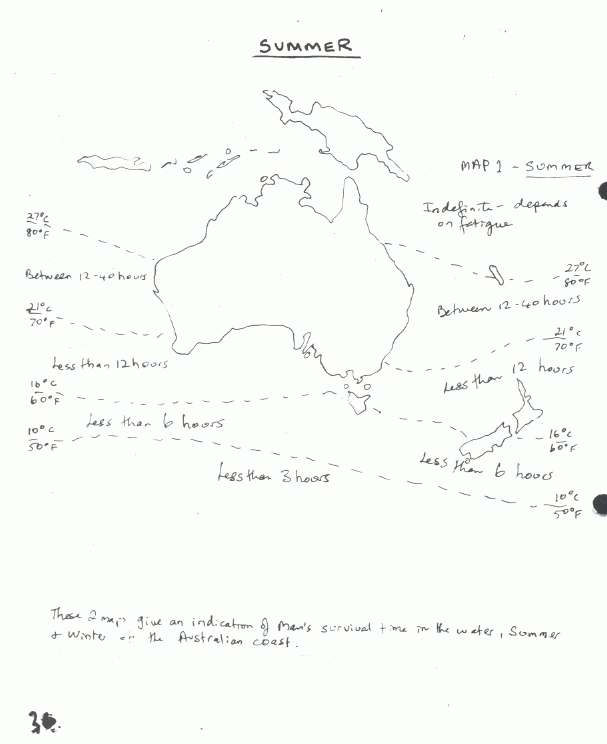 SUMMER
MAP 1 - SUMMER
Indefinite - depends
on fatigue
27°C
80°F
27°C
80°F
Between 12-40 hours
Between 12-40 hours
21°C
70°F
21°C
70°F
Less than 12 hours
Less than 12 hours
16°C
60°F
Less than 6 hours
16°C
60°F
10°C
50°F
Less than 6 hours
Less than 3 hours
10°C
50°F
These 2 maps give an indication of Man's survival time in the water, Summer
+ Winter on the Australian coast.